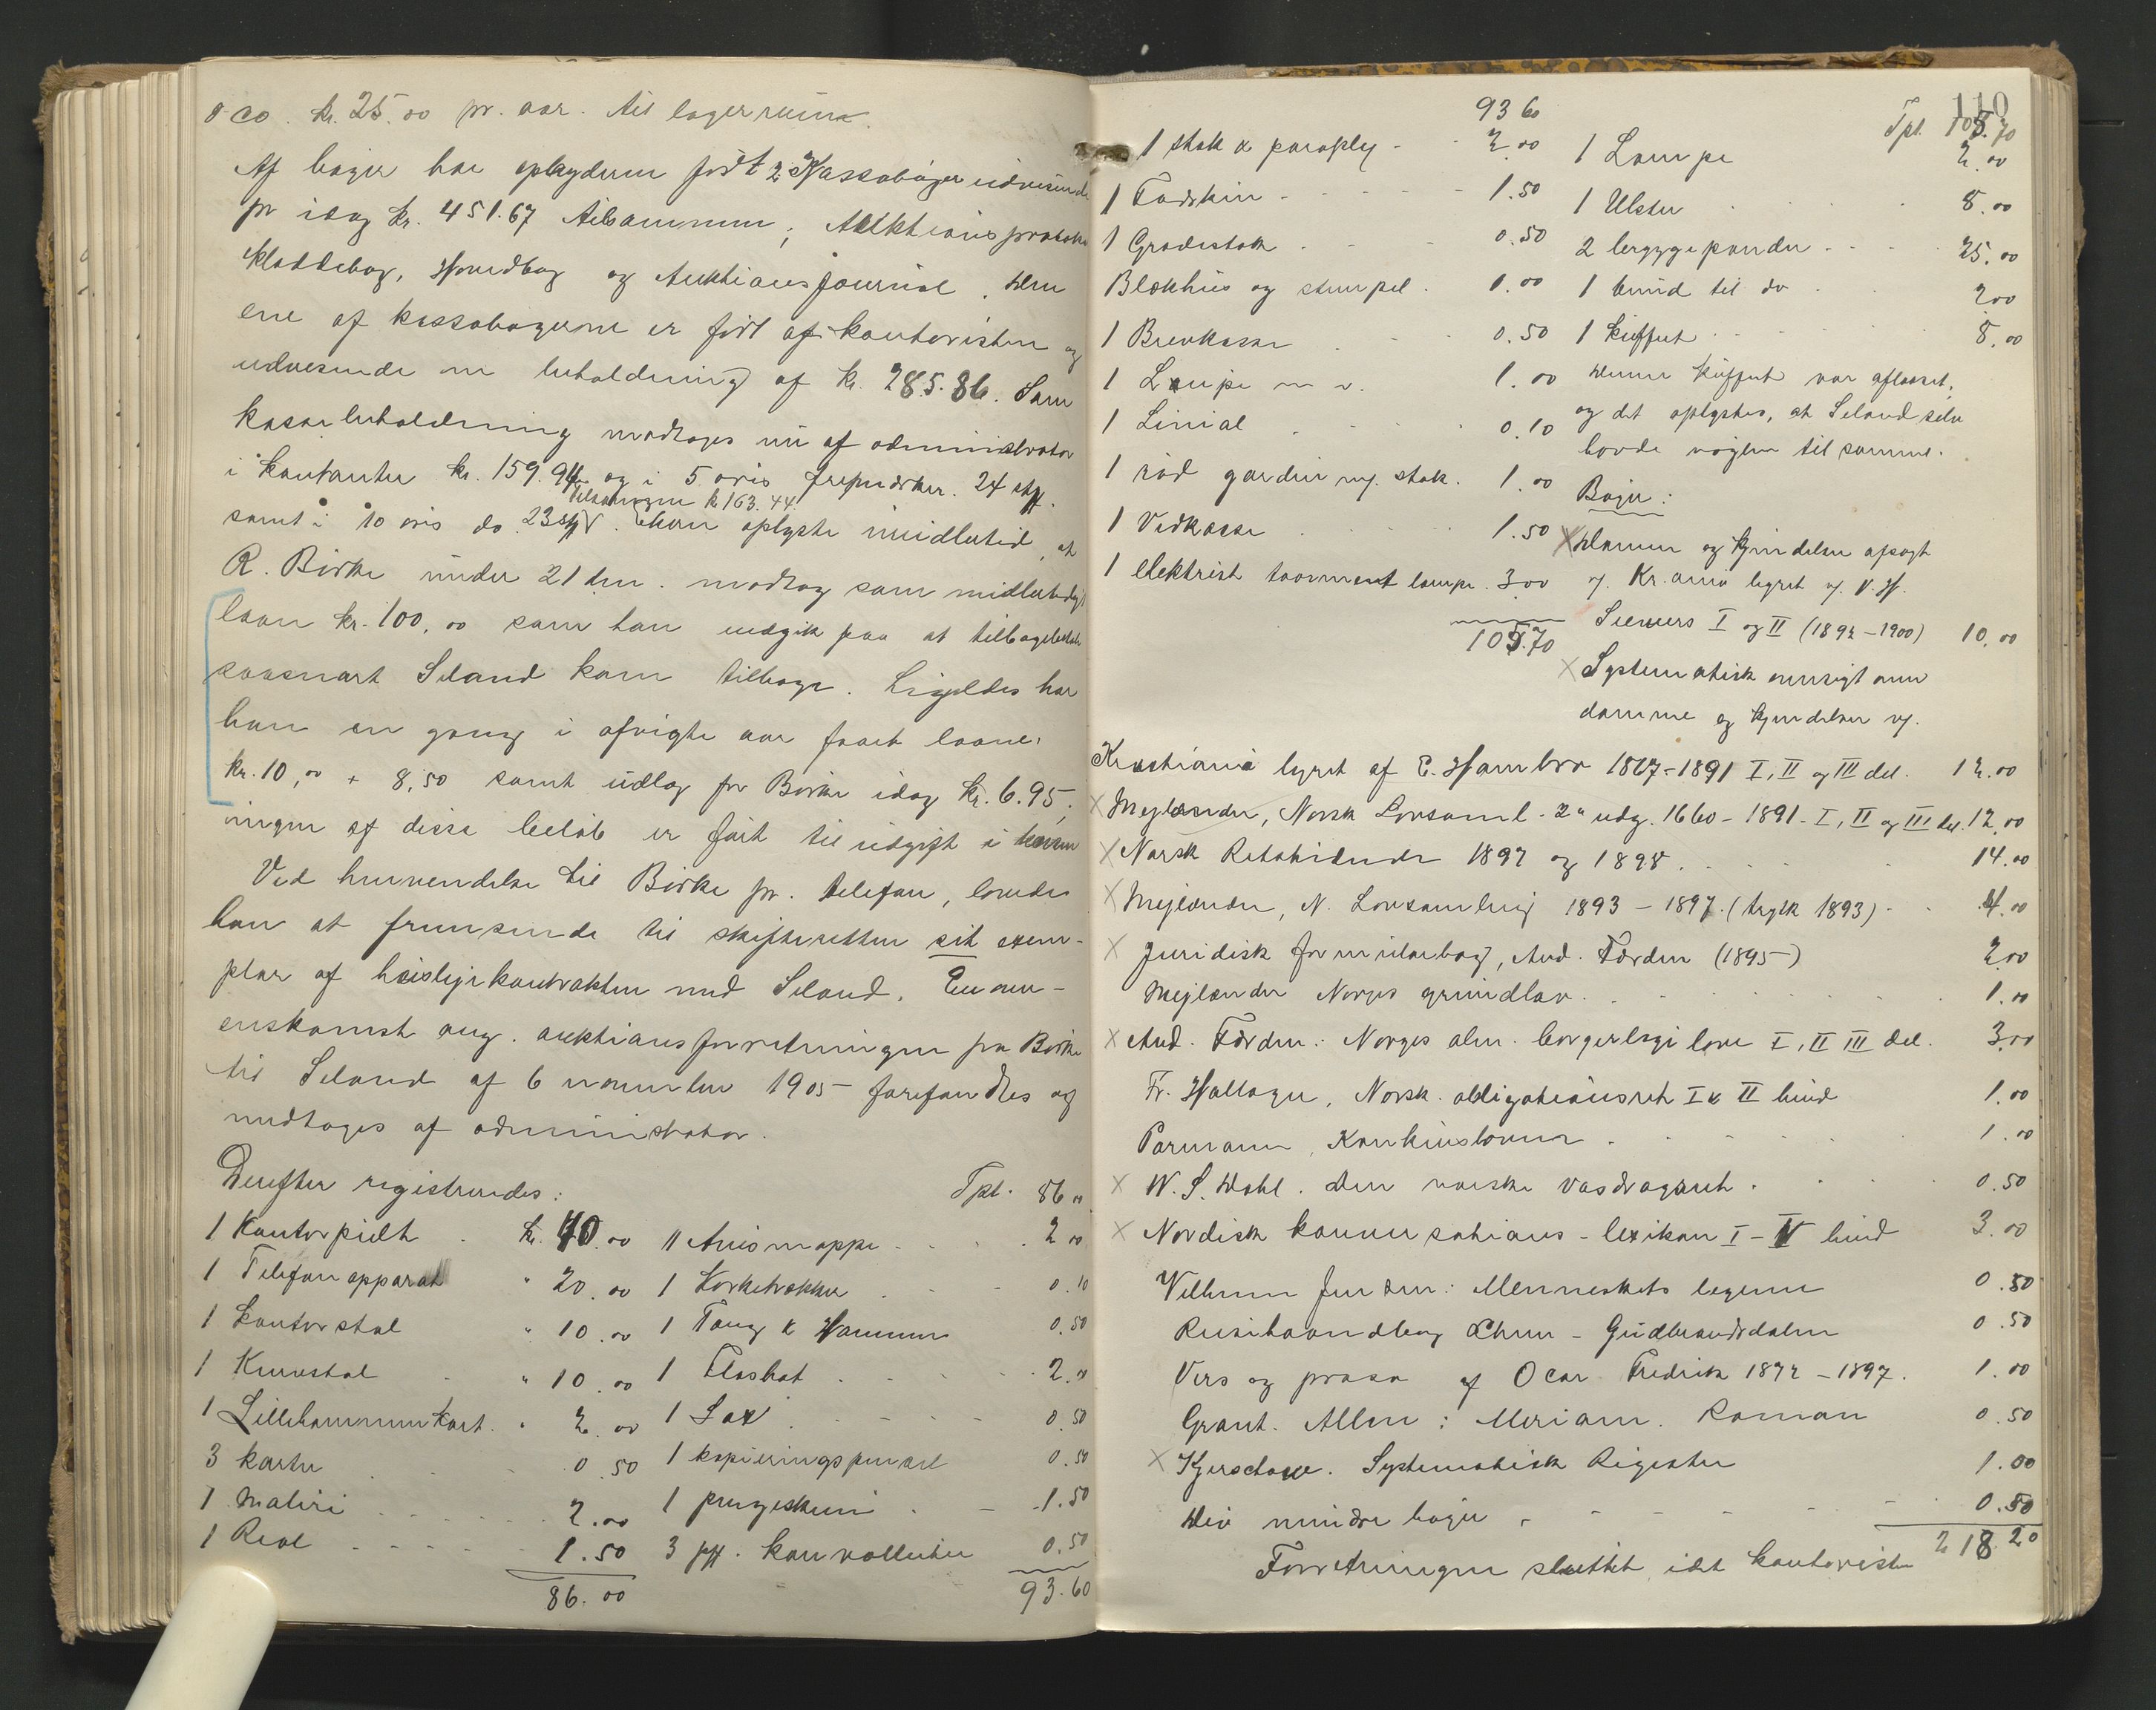 & co. kr. 25.00 pr. aar. til lagerruin.
Af bøger har opbyderen ført 2 Kassabøger udvisende
pr idag kr. 451.67 tilsammen; Auktionsprotokol
Kladdebog, Hovedbog og Auktionsjournal. Den
ene af kassabøgerne er ført af kontoristen og
udvisende en beholdning af kr. 285.86. Som
kassabeholdning modtoges nu af administrator
i kontanter kr. 159.94 og i 5 øris frimærker. 24 stk.
tilsammen kr 163.44
samt i 10 øris do 23 stk. Han oplyste imidlertid, at
R. Birke under 21 ds. modtog som midlertidigt
laan kr. 100,00 som han indgik paa at tilbagebetale
saasnart Seland kom tilbage. Ligeledes har
han en gang i afvigte aar faaet laane:
kr. 10,00 + 8,50 samt udlæg for Birke idag kr. 6.95;
ingen af disse beløb er ført til udgift i bøgerne
Ved henvendelse til Birke pr. telefon, lovede
han at fremsende til skifteretten sit exem-
plar af husleiekontrakten med Seland. En over-
enskomst ang. auktionsforretningen fra Birke
til Seland af 6 november 1905 forefandtes og
modtoges af administrator.
Derefter registreredes:
Tpt. 86 00
1 Kontorpult kr. 40.00 11 Avismappe 2 00
1 Telefonapparat " 20.00 1 Korketrækker 0.10
1 Kontorstol " 10.00 1 Tang & Hammer 0.50
1 Kurvstol " 10.00 1 Floshat 2.00
1 Lillehammerkart. " 2.00 1 Sax 0.50
3 karter 0.50 1 kopieringspensel 0.50
1 Maleri 2.00 1 pengeskrin 1.50
1 Reol 1.50 3 pk. konvolutter 0.50
86.00 93.60
110
93 60
Tpt. 105.70
1 stok & paraply 2.00
1 Fodskin 1.50
1 Gradestok 0.50
Blækhus og stempel 1.00
1 Brevkasse 0.50
1 Lampe m. v. 1.00
1 Linial 0.10
1 rød gardin m/ stok. 1.00
1 Vedkasse 1.50
1 elektrisk lampe. 3.00
105.70
1 Lampe 2.00
1 Ulster 8.00
2 25.00
1 bund til do 2 00
1 Kuffert 8.00
Denne Kuffert var aflaaset,
og det oplystes, at Seland selv
havde nøglen til samme.
Bøger:
x Domme og Kjendelser afsagt
v/ Kr.ania byret v/ V. H.
Siewers I og II (1892-1900) 10.00
x Systematisk oversigt over
domme og kjendelser v/
Kristiania byret af E. Hambro 1867-1891 I, II og III del. 12.00
x Mejlænder, Norsk Lovsaml. 2n udg. 1660-1891. I, II og III del. 12.00
x Norsk Retstidende 1897 og 1898. 14.00
x Mejlænder, N. Lovsamling 1893-1897. (trykk 1893) 4.00
x Juridisk formularbog, And. Færden (1895) 2.00
Mejlænder Norges grundlov. 1.00
x And. Færden: Norges alm. borgerlige love I, II III del. 3.00
Fr. Hallager, Norsk obligationsret I & II bind 1.00
Parmann, Konkursloven 1.00
x W. S. Dahl. Den norske vasdragsret. 0.50
x Nordisk konversations-lexikon I-V bind 3.00
Vilhelm Jensen: Menneskets legeme 0.50
Reisehaandbog Lhmr-Gudbrandsdalen 0.50
Vers og prosa af Oscar Fredrik 1892-1897. 1.00
Grant. Allen: Miriam. Roman 0.50
x Kjerschow. Systematisk Register 1.00
Div mindre bøger 0.50
218.20
Forretningen sluttet, idet kontoristen